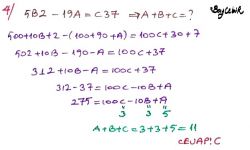 4/ 5B2 - 19A = C37 ⇒ A+B+C=?
500+10B+2-(100+90+A) = 100C+30+7
502+10B-190-A = 100C+37
312+10B-A = 100C+37
312-37 = 100C-10B+A
275 = 100C-10B+A
3 3 5
A+B+C = 3+3+5 = 11
CEVAP: C